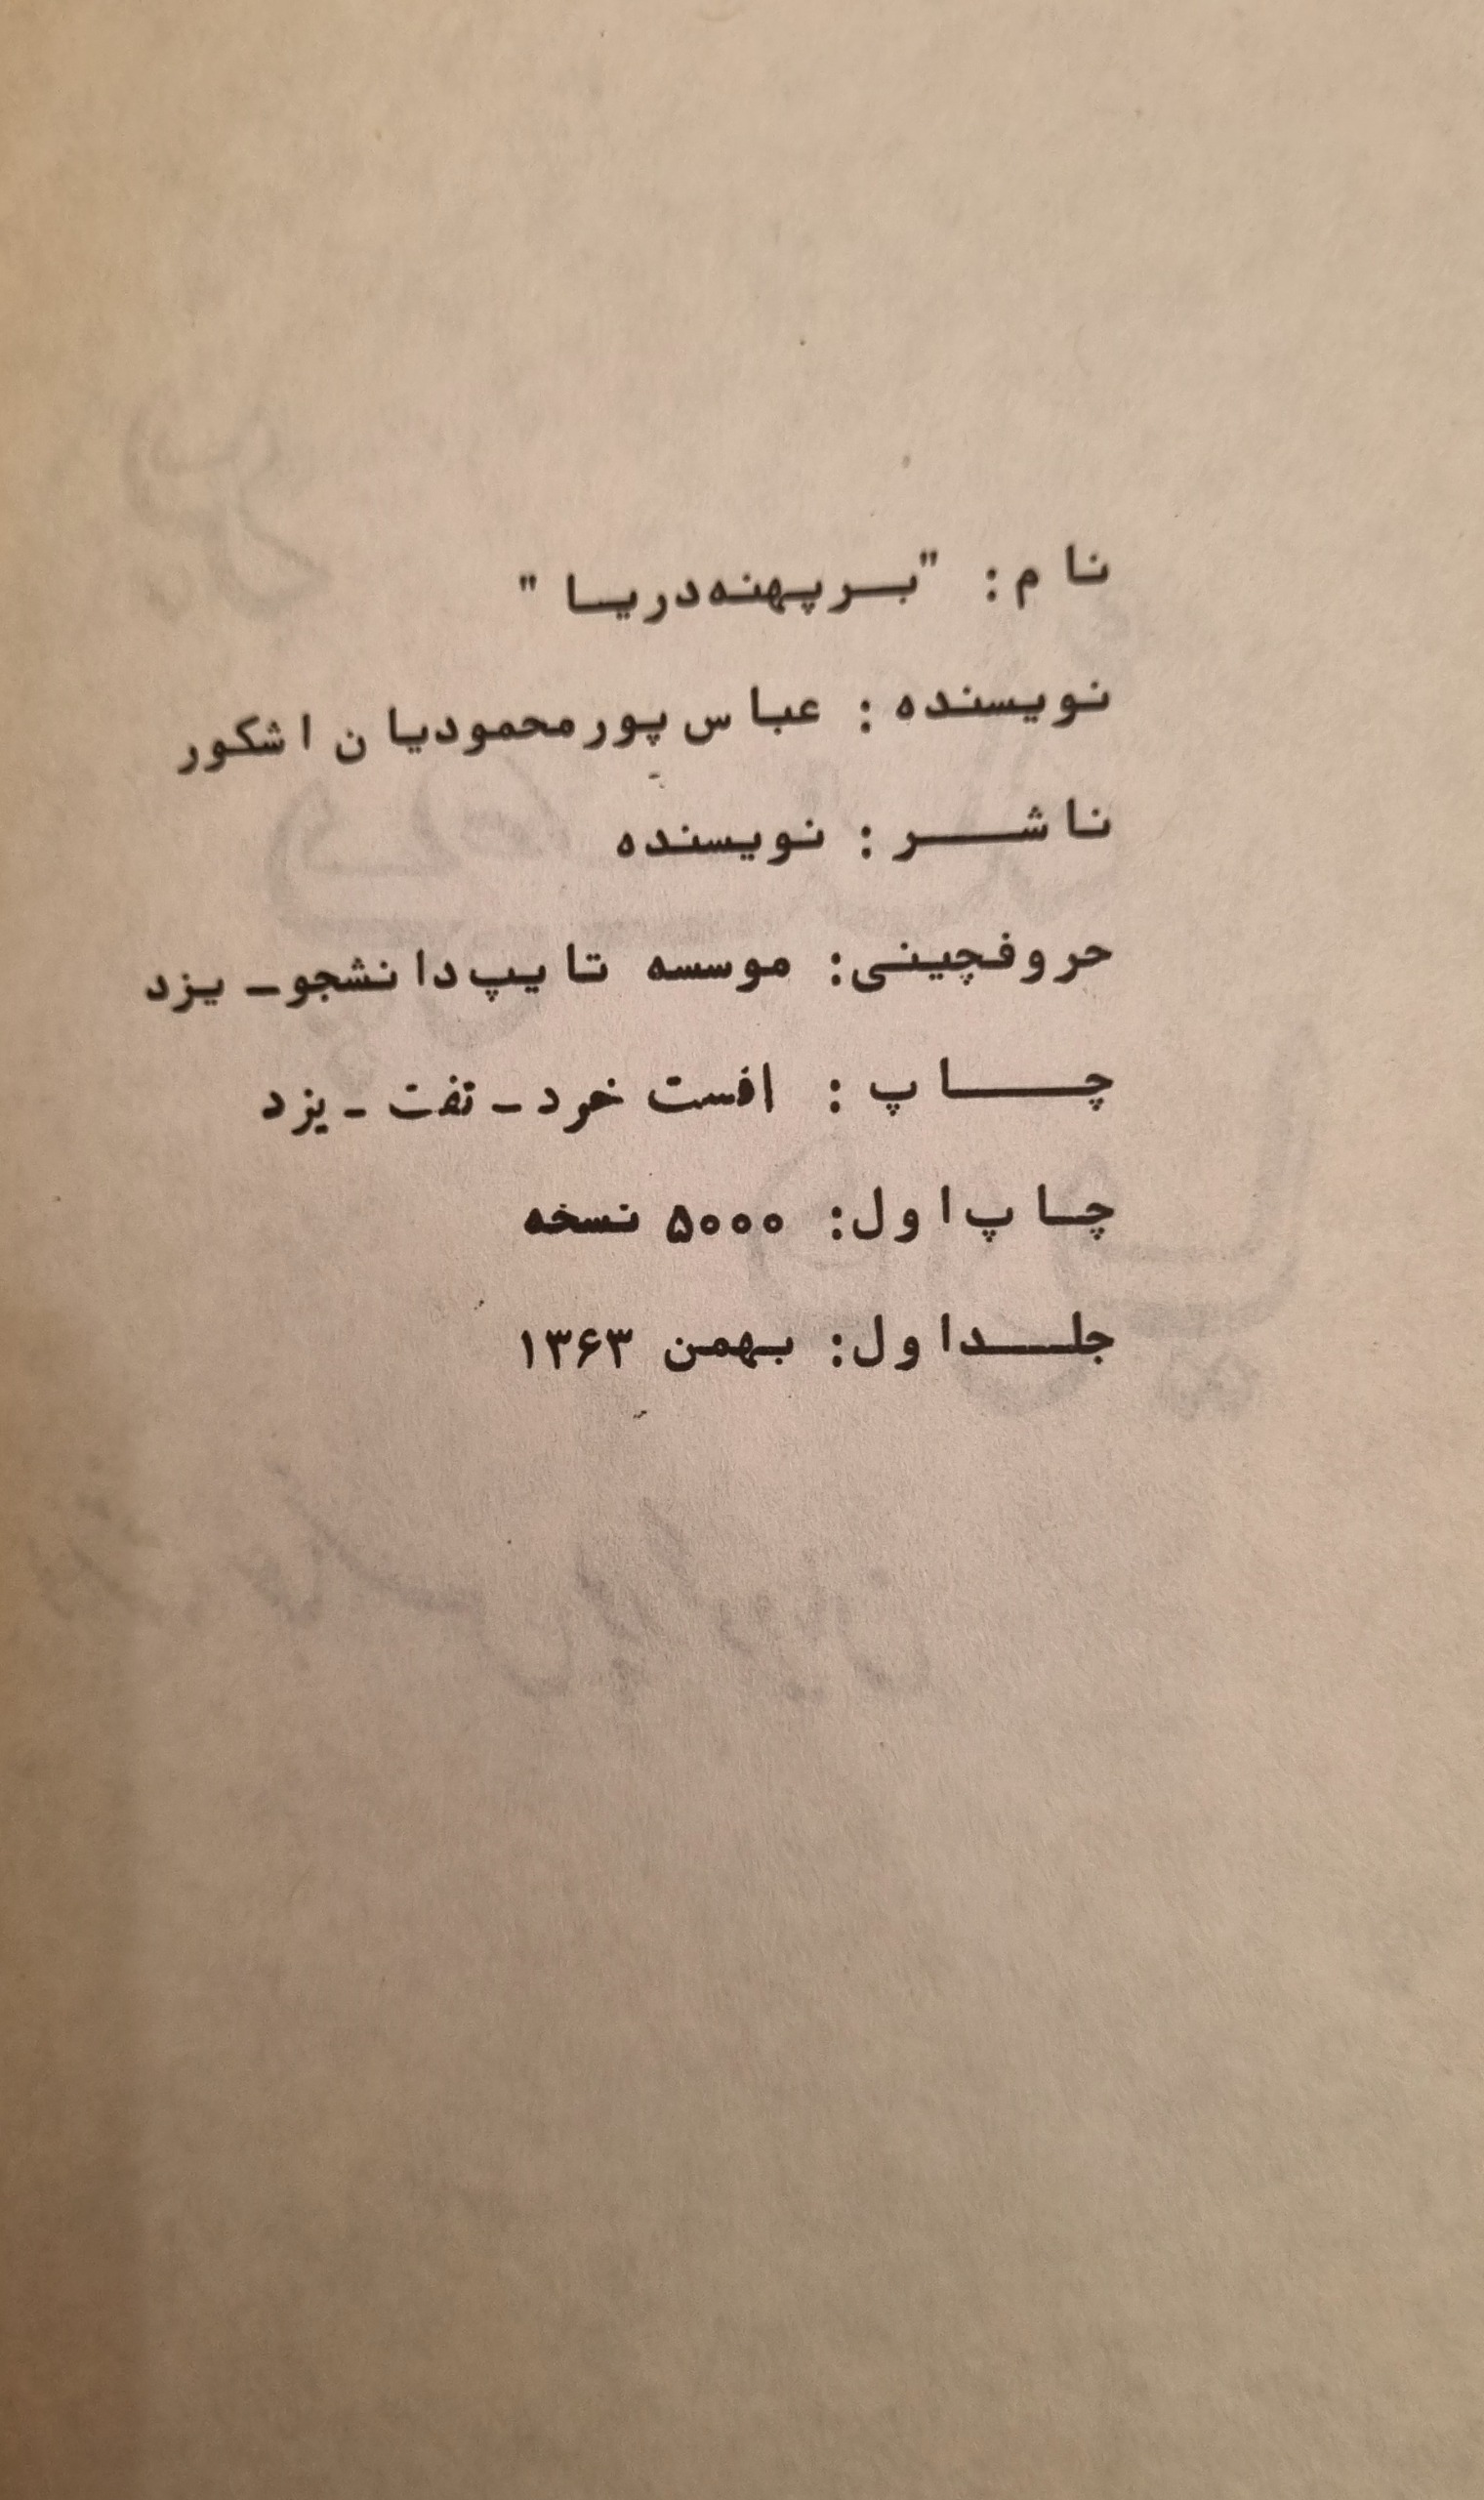 نام: "بر پهنه دریا"
نویسنده: عباس پور محمودیان اشکور
ناشر: نویسنده
حروفچینی: موسسه تایپ دانشجو - یزد
چاپ: افست خرد - تفت - یزد
چاپ اول: ۵۰۰۰ نسخه
جلد اول: بهمن ۱۳۶۳